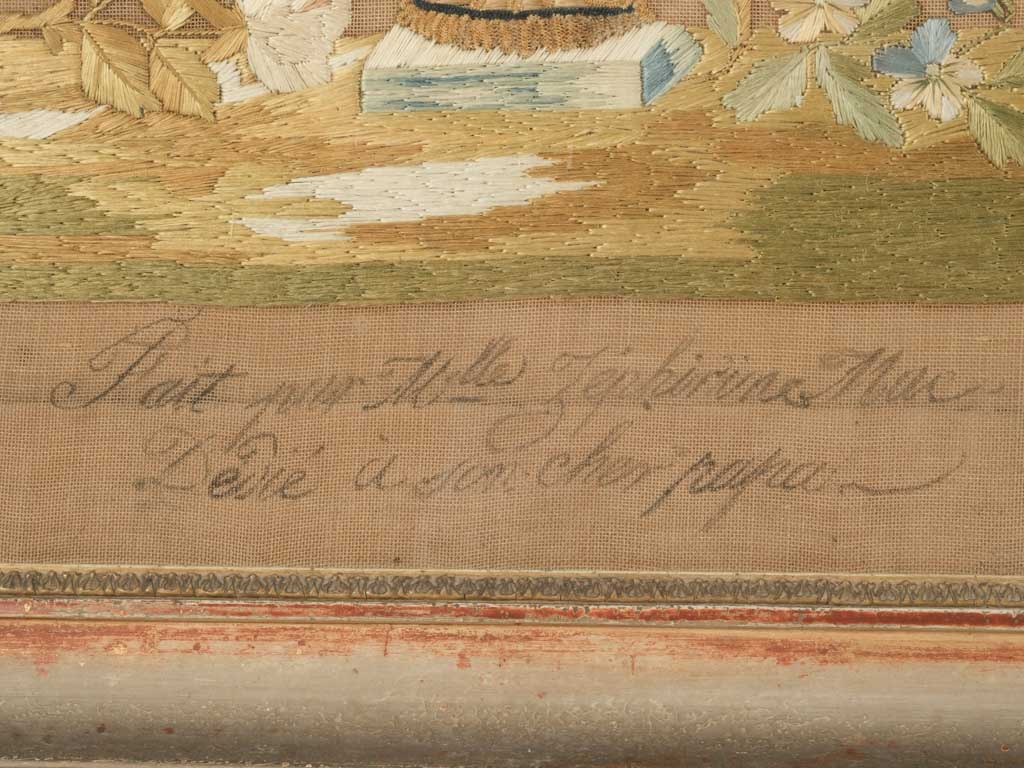 Fait par Mlle Zéphirine Mac
Dédié à son cher papa.